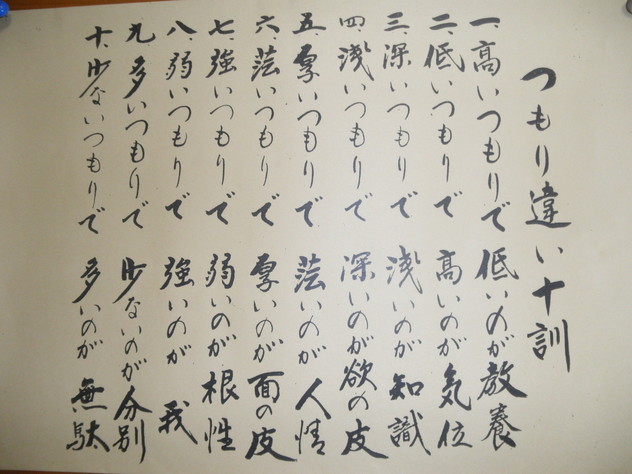 つもり違い十訓
一、高いつもりで 低いのが教養
二、低いつもりで 高いのが気位
三、深いつもりで 浅いのが知識
四、浅いつもりで 深いのが欲の皮
五、厚いつもりで 薄いのが人情
六、薄いつもりで 厚いのが面の皮
七、強いつもりで 弱いのが根性
八、弱いつもりで 強いのが我
九、多いつもりで 少ないのが分別
十、少ないつもりで 多いのが無駄